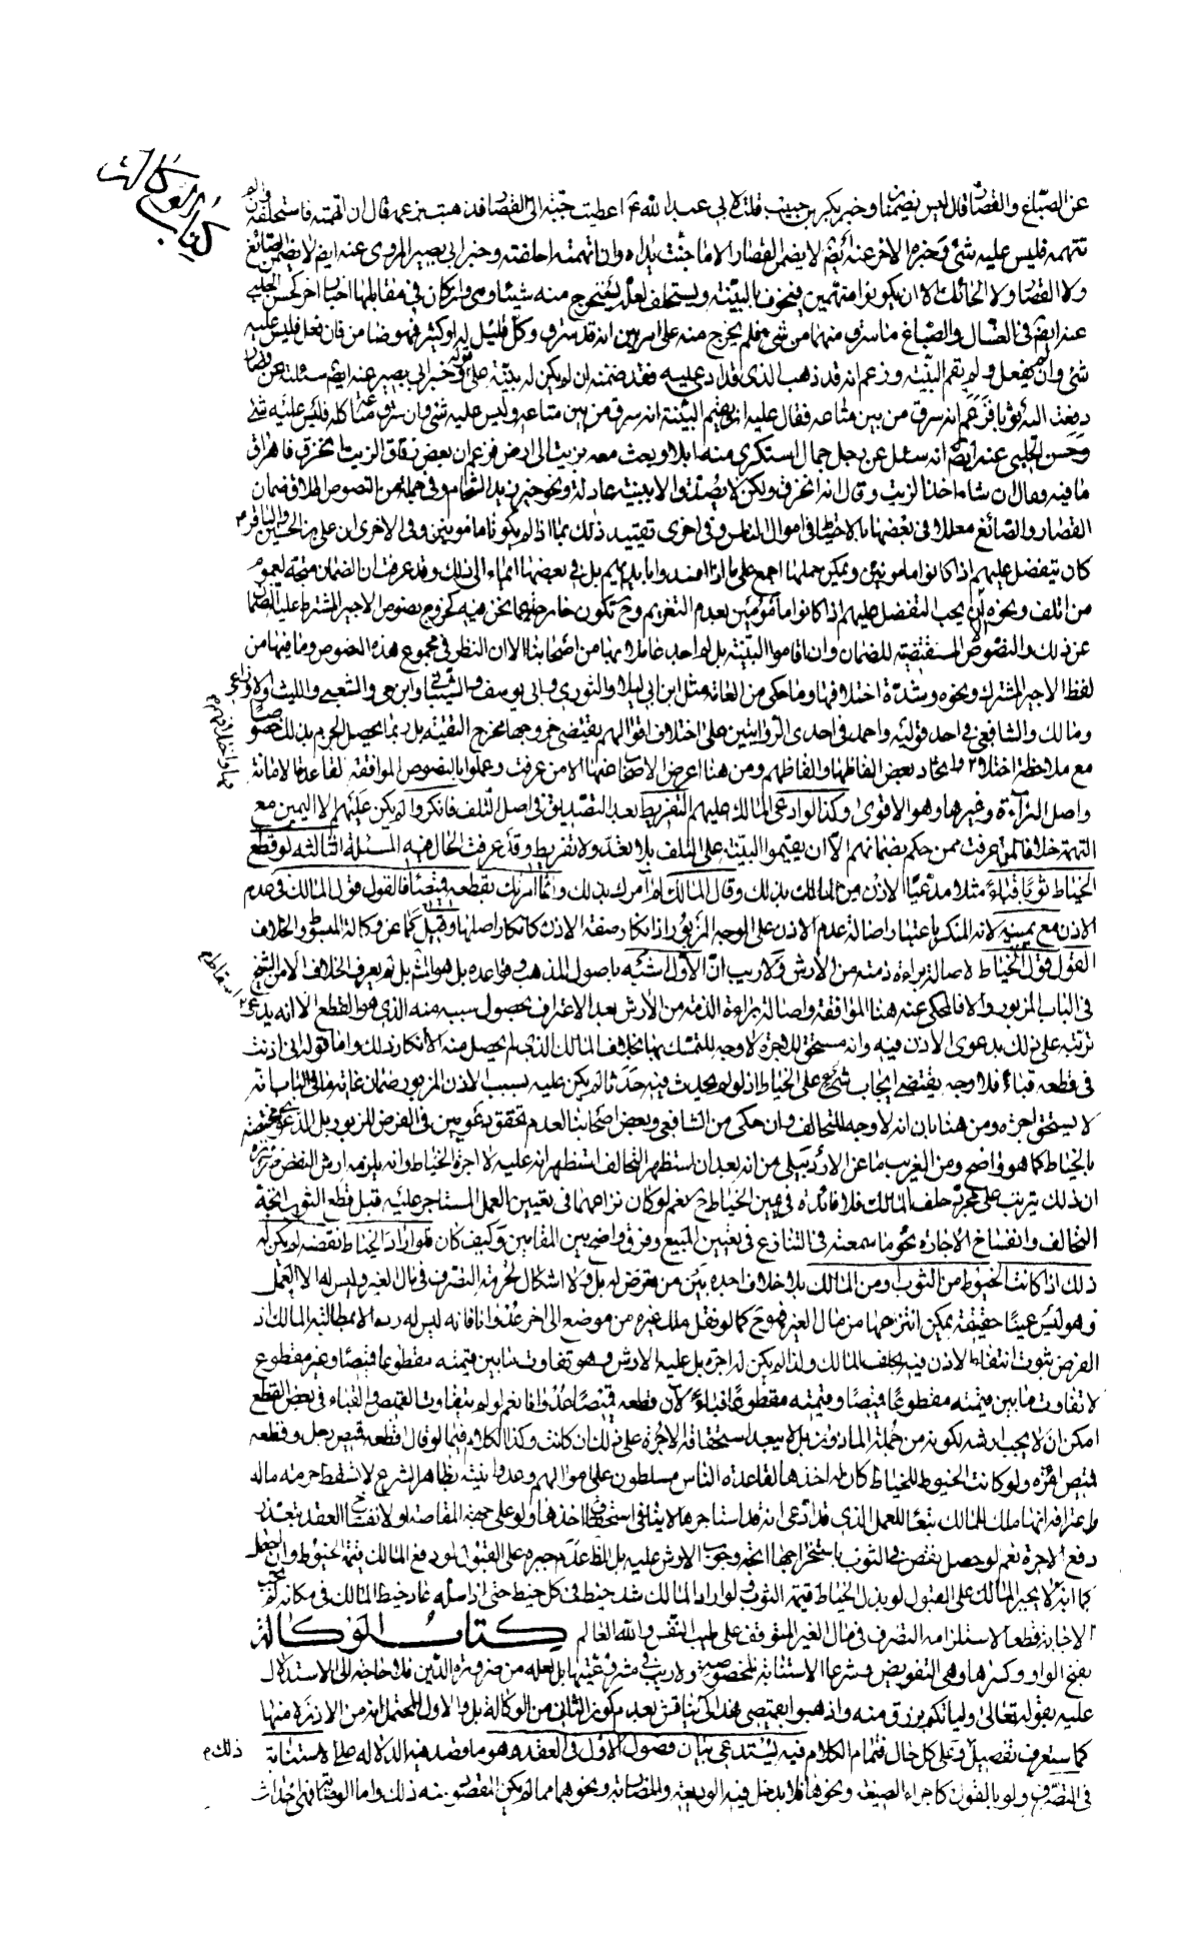 كتاب الوكالة
عن الصباغ والقصار قال ليس يضمنا وخبر بكر بن حبيب قلت لابي عبد الله ع اعطيت جبة الى القصار فذهبت بزعمه قال ان اتهمته فاستحلفه وان لم
تتهمه فليس عليه شئ وخبره الاخر عنه ايضم لا يضمن القصار الا ما جنت يداه وان اتهمته احلفته وخبر ابي بصير المروى عنه ايضم لا يضمن الصائغ
ولا القصار ولا الحائك الا ان يكونوا متهمين فيخوف بالبينة ويستحلف لعله يستخرج منه شيئا وهي وان كان في مقابلها اخبار اخر كحسن الحلبي
عنه ايضم في الغسال والصباغ ما سرق منهما من شئ فلم يخرج منه على امر بين انه قد سرق وكل قليل له او كثير فهو ضامن فان فعل فليس عليه
شئ وان لم يفعل ولم يقم البينة وزعم انه قد ذهب الذى قد ادعى عليه فقد ضمنه ان لم يكن له بينة على قوله وخبر ابي بصير عنه ايضم سئلته عن قصار
دفعت اليه ثوبا فزعم انه سرق من بين متاعه فقال عليه ان يقيم البينة انه سرق من بين متاعه وليس عليه شئ وان سرق متاعه كله فليس عليه شئ
وحسن الحلبي عنه ايضم انه سئل عن رجل جمال استكرى منه ابلا وبعث معه بزيت الى ارض فزعم ان بعض زقاق الزيت انخرق فاهراق
ما فيه فقال ان شاء اخذ الزيت وقال انه انخرق ولكن لا يصدق الا ببينة عادلة ونحو خبر زيد الشحام وفي جملة من النصوص اطلاق ضمان
القصار والصائغ معللا في بعضها بالاحتياط في اموال الناس وفي اخرى تقييد ذلك بما اذا لم يكونا مامونين وفي الاخرى ان علي بن الحسين والباقر ع
كان يتفضل عليهم اذا كانوا مامونين ويمكن حملها اجمع على ما اذا افسدوا بايديهم بل في بعضها ايماء الى ذلك وقد عرفت ان الضمان متجه لعموم
من اتلف ونحوه او يحب التفضل عليهم اذا كانوا مامونين بعدم التغريم وح تكون خارجة عما نحن فيه كخروج نصوص الاجير المشترط عليه الضمان
عن ذلك والنصوص المقتضية للضمان وان اقاموا البينة بل لم اجد عاملا بها من اصحابنا الا ان النظر في مجموع هذه النصوص وما فيها من
لفظ الاجير المشترك ونحوه وشدة اختلافها وما حكى من العامة مثل ابن ابي ليلى والثوري وابي يوسف والشيباني وابن حي والشعبي والليث والاوزاعي
ومالك والشافعي في احد قوليه واحمد في احدى الروايتين على اختلاف اقوالهم يقتضى خروجها مخرج التقية بل ربما يحصل الجزم بذلك خصوصا
مع ملاحظة اختلاف واتحاد بعض الفاظها والفاظهم ومن هنا اعرض الاصحاب عنها الا من عرفت وعملوا بالنصوص الموافقة لقاعدة الامانة
واصل البرائة وغيرها وهو الاقوى وكذا لو ادعى المالك عليهم التفريط بعد التصديق في اصل التلف فانكروا لم يكن عليهم الا اليمين مع
التهمة خلافا لمن عرفت ممن حكم بضمانهم الا ان يقيموا البينة على التلف بلا تعد ولا تفريط وقد عرفت الحال فيه المسئلة الثالثة لو قطع
الخياط ثوبا قباء مثلا مدعيا الاذن من المالك بذلك وقال المالك لم امرك بذلك وانما امرتك بقطعه قميصا فالقول قول المالك في عدم
الاذن مع يمينه لانه المنكر باعتبار اصالة عدم الاذن على الوجه المزبور اذ انكار صفة الاذن كانكار اصلها وقيل كما عن وكالة المبسوط والخلاف
القول قول الخياط لاصالة براءة ذمته من الارش ولا ريب ان الاول اشبه باصول المذهب وقواعده بل هو المشهور بل لم يعرف الخلاف الا من الشيخ
في الباب المزبور والا فالمحكى عنه هنا الموافقة واصالة براءة الذمة من الارش بعد الاعتراف بحصول سببه منه الذي هو القطع الا انه يدعى
ترتبه على ذلك بدعوى الاذن فيه وانه مستحق للاجرة لا وجه للتمسك بها بخلاف المالك الذى لم يحصل منه الا انكار ذلك واما قوله انى اذنت
في قطعه قباء فلا وجه يقتضى ايجاب شئ على الخياط اذ لو لم يحدث فيه حدثا لم يكن عليه بسبب الاذن المزبور ضمان غايته انه
لا يستحق اجره ومن هنا بان انه لا وجه للتحالف وان حكى من الشافعي وبعض اصحابنا لعدم تحقق دعويين في الفرض المزبور بل الدعوى مختصة
بالخياط كما هو واضح ومن الغريب ما عن الاردبيلى من انه بعد ان استظهر التحالف استظهر انه عليه لا اجرة الخياط وانه يلزمه ارش النقص ضرورة
ان ذلك يترتب على مجرد حلف المالك فلا فائدة في يمين الخياط ح نعم لو كان نزاعهما في تعيين العمل المستاجر عليه قبل قطع الثوب اتجه
التحالف وانفساخ الاجارة نحو ما سمعته في التنازع في تعيين المبيع وفرق واضح بين المقامين وكيف كان فلو اراد الخياط نقضه لم يكن له
ذلك اذا كانت الخيوط من الثوب او من المالك بلا خلاف اجده بين من تعرض له بل ولا اشكال لحرمة التصرف في مال الغير وليس له الا العمل
وهو ليس عينا حقيقة يمكن انتزاعها من مال الغير فهو ح كما لو نقل ملك غيره من موضع الى اخر عدوانا فانه ليس له رده الا مطالبة المالك اذ
الفرض ثبوت انتفاء الاذن فيه بحلف المالك ولذا لم يكن له اجرة بل عليه الارش وهو تفاوت ما بين قيمته مقطوعا قميصا وغير مقطوع
لا تفاوت ما بين قيمته مقطوعا قميصا وقيمته مقطوعا قباء لان قطعه قميصا عدوانا نعم لو لم يتفاوت القميص والقباء في بعض القطع
امكن ان لا يجب ارشه لكونه من جملة الماذون بل لا يبعد استحقاقه الاجرة على ذلك ان كانت وكذا الكلام فيما لو قال اقطعه قميص رجل وقطعه
قميص امرئة ولو كانت الخيوط للخياط كان له اخذها لقاعدة الناس مسلطون على اموالهم وعدوانيته بظاهر الشرع لا تسقط حرمة ماله
واعترافه انها ملك للمالك تبعا للعمل الذى قد ادعى انه قد استاجرها لا ينافى استحقاق اخذها ولو على جهة المقاصة او لانفساخ العقد بتعذر
دفع الاجرة نعم لو حصل نقص في الثوب باستخراجها اتجه وجوب الارش عليه بل الظ عدم جبره على القبول لو دفع المالك قيمة الخيوط
كما انه لا يجبر المالك على القبول لو بذل الخياط قيمة الثوب ولو اراد المالك شد خيط في كل خيط حتى اذا سله عاد خيط المالك في مكانه لم تجب
الاجابة قطعا لاستلزامه التصرف في مال الغير المتوقف على طيب النفس والله العالم كتاب الوكالة
بفتح الواو وكسرها وهى التفويض وشرعا الاستنابة المخصوصة ولا ريب في مشروعيتها بل لعله من ضرورة الدين فلا حاجة الى الاستدلال
عليه بقوله تعالى ولياتكم برزق منه واذهبوا بقميصى هذا كى يناقش بعدم كون الثانى من الوكالة بل والاول المحتمل انه من الاذن منها
كما ستعرف تفصيله وعلى كل حال فتمام الكلام فيه يستدعى بيان فصول الاول في العقد وهو ما قصد فيه الدلالة على الاستنابة
في التصرف ولو بالقول كاجراء الصيغة ونحوها فلا يدخل فيه الوديعة والمضاربة ونحوهما مما لم يكن المقصود منه ذلك واما الوصاية فهى احداث